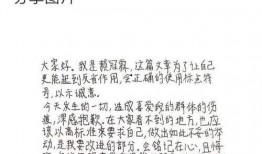 大家好。我是赖冠霖，这篇文章为了让自
更能起到反省作用，会正确的使用标点符
号，以示诚意。
今天发生的一切，造成喜爱我的群体的伤
痕，深感抱歉。在大家看不到的地方，也应
该以高标准来要求自己，做出如此不妥的举
动，是我要改进的部分。会铭记在心，且悔